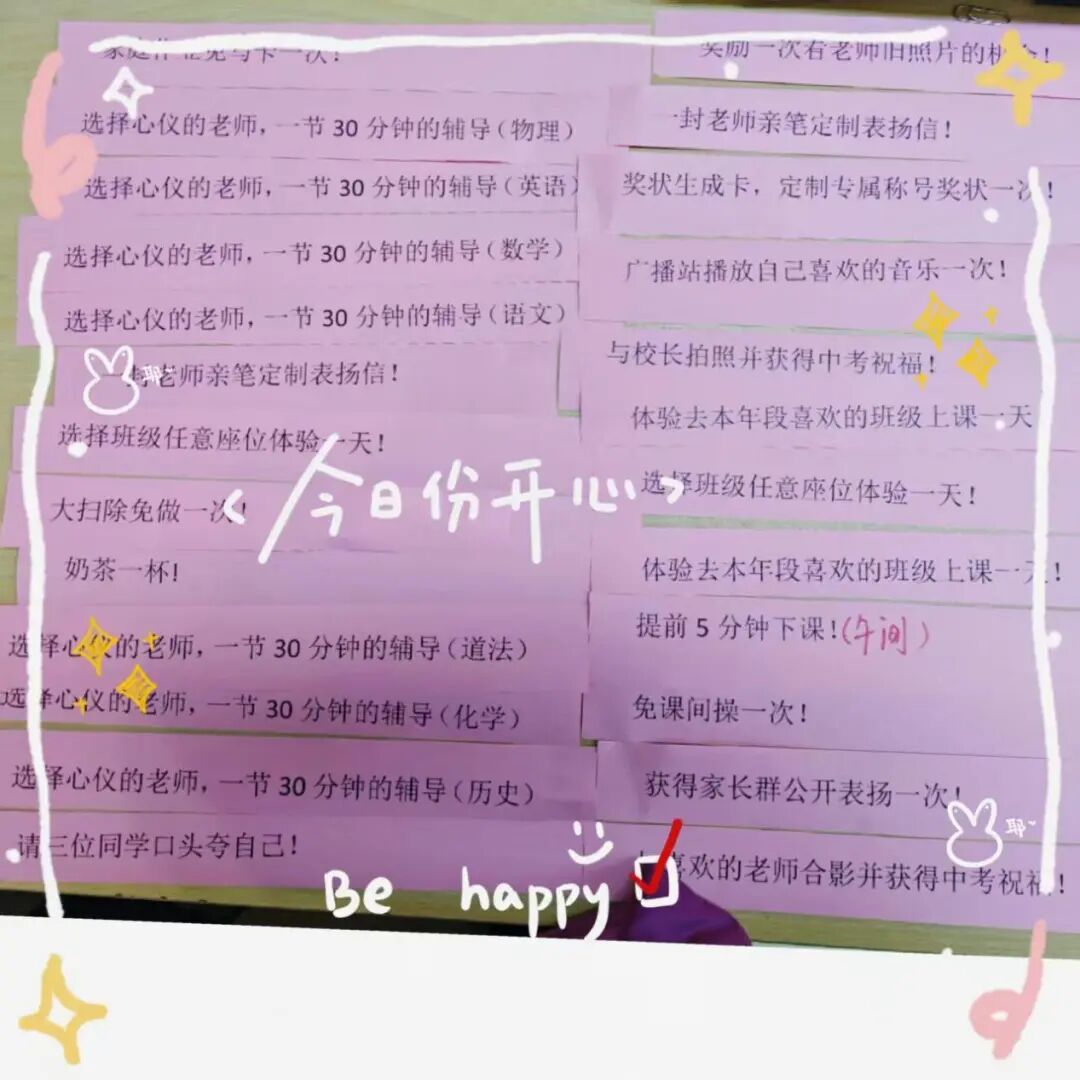 家庭作业免写卡一次！
选择心仪的老师，一节 30 分钟的辅导（物理）
选择心仪的老师，一节 30 分钟的辅导（英语）
选择心仪的老师，一节 30 分钟的辅导（数学）
选择心仪的老师，一节 30 分钟的辅导（语文）
一封老师亲笔定制表扬信！
选择班级任意座位体验一天！
大扫除免做一次！
奶茶一杯!
选择心仪的老师，一节 30 分钟的辅导（道法）
选择心仪的老师，一节 30 分钟的辅导（化学）
选择心仪的老师，一节 30 分钟的辅导（历史）
请三位同学口头夸自己！
奖励一次看老师旧照片的机会！
一封老师亲笔定制表扬信！
奖状生成卡，定制专属称号奖状一次！
广播站播放自己喜欢的音乐一次！
与校长拍照并获得中考祝福！
体验去本年段喜欢的班级上课一天
选择班级任意座位体验一天！
体验去本年段喜欢的班级上课一天！
提前 5 分钟下课！（午间）
免课间操一次！
获得家长群公开表扬一次！
喜欢的老师合影并获得中考祝福！
<今日份开心>
Be happy